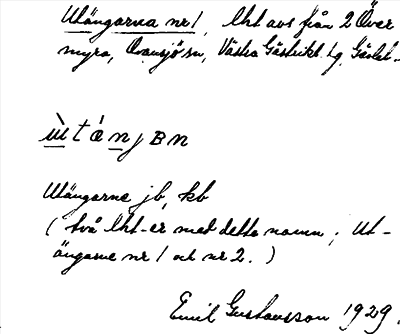 Utängarna nr 1, lht avs från 2 Över
myra, Ovansjö sn, Västra Gästrikl. tg, Gävleb.
ù̱t á ṉ j ʙ n
Utängarne jb, kb
(två lht-er med detta namn; Ut-
ängarne nr 1 och nr 2.)
Emil Gustavsson 1929.